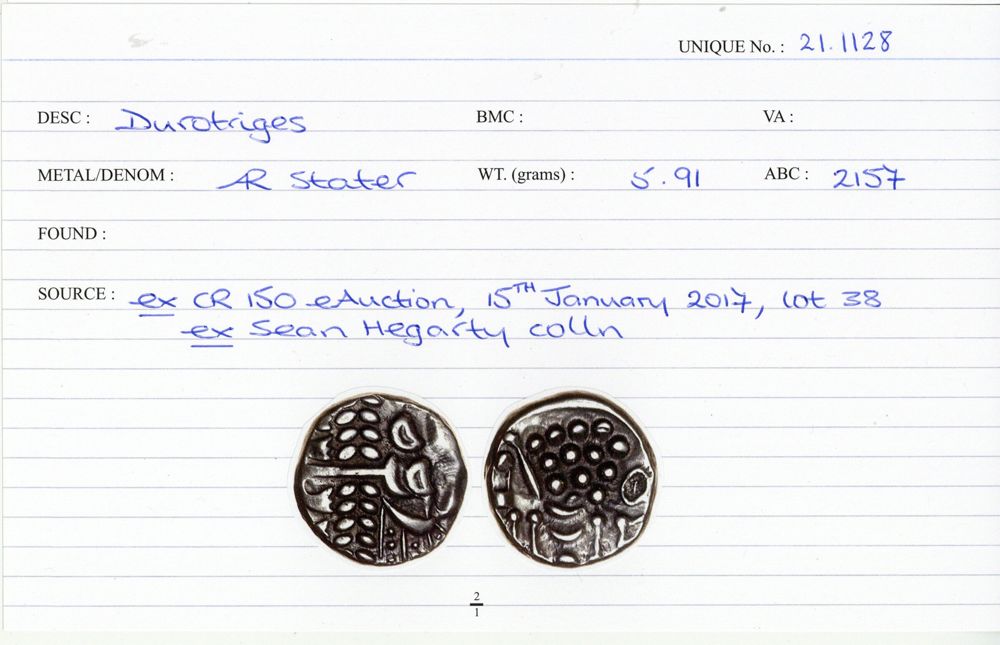 UNIQUE No. : 21.1128
DESC : Durotriges BMC : VA :
METAL/DENOM : AR Stater WT. (grams) : 5.91 ABC : 2157
FOUND :
SOURCE : ex CR 150 eAuction, 15TH January 2017, lot 38
ex Sean Hegarty colln
2
1